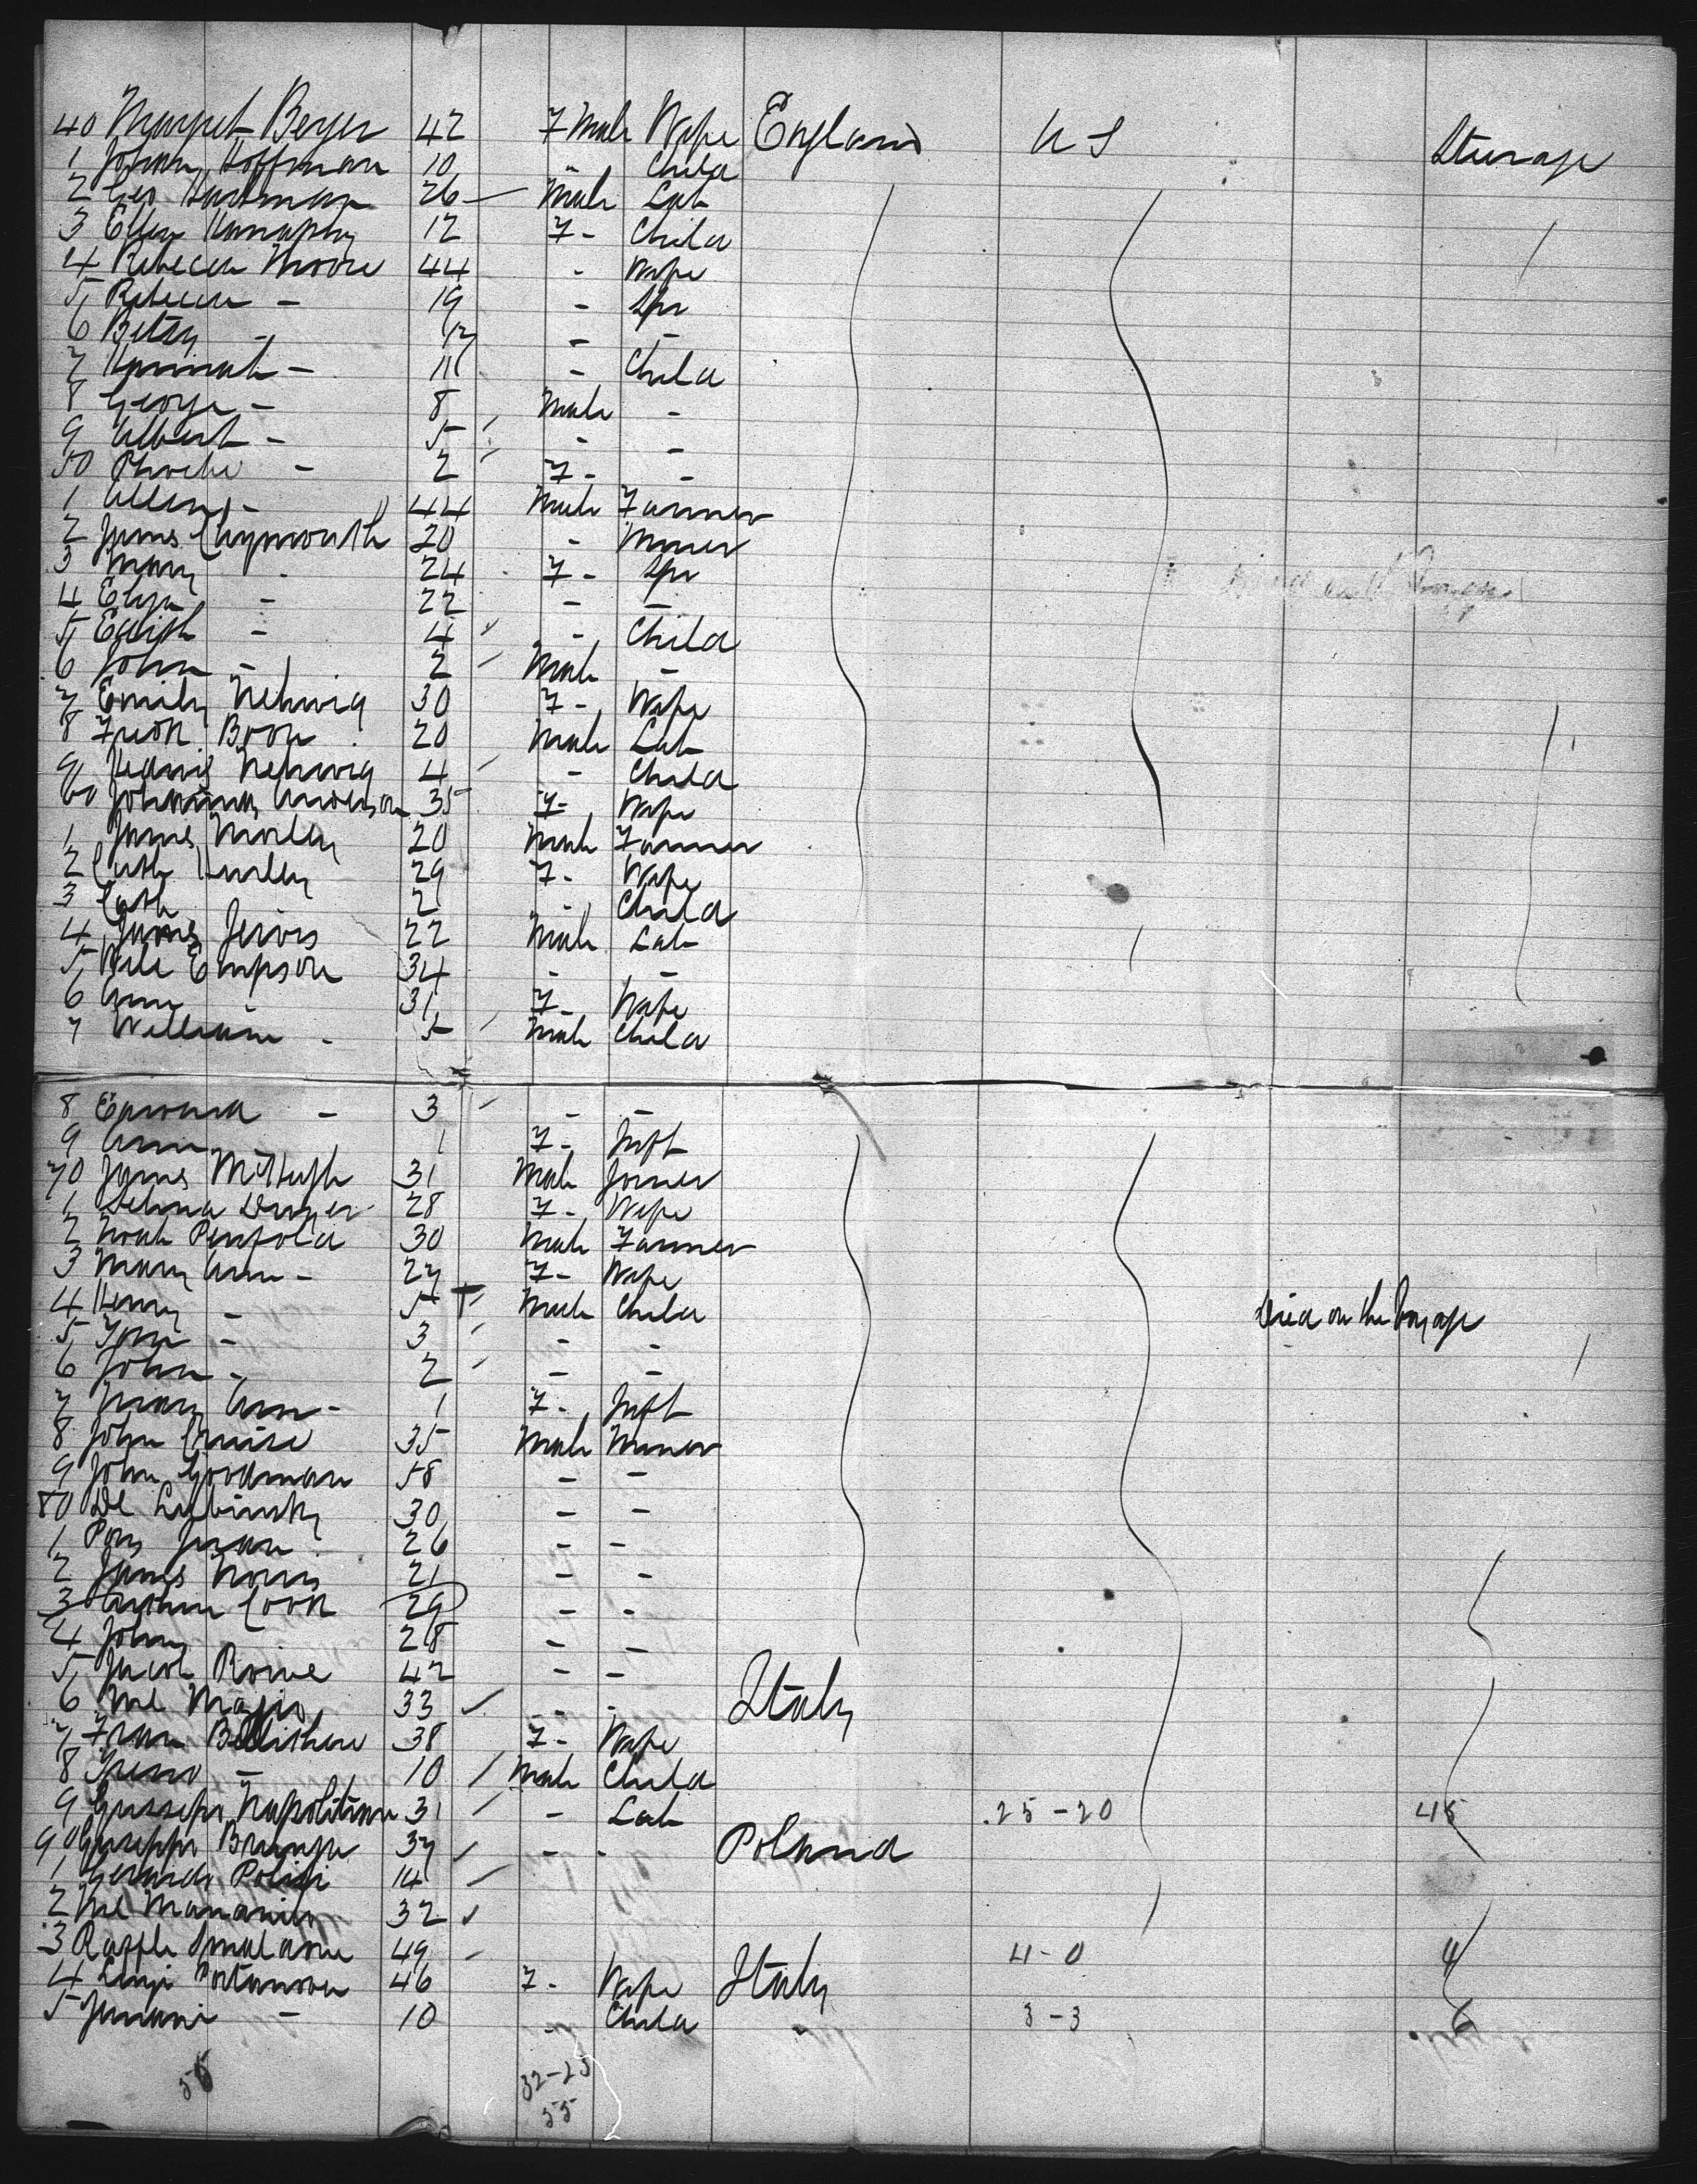 40 Margret Beyer 42 F Male Wife England U S Steerage
1 Johann Hoffman 10 - Child
2 Geo Hartman 26 Male Lab
3 Ellen 12 F - Child
4 Rebecca Moore 44 - Wife
5 Rebecca - 19 - Spr
6 Betsy - 17 - -
7 Hannah - 11 - Child
8 George - 8 Male -
9 Albert - 5 - -
50 Phoebe - 2 F - -
1 Allen - 44 Male Farmer
2 James Claymouth 20 - Miner
3 Mary - 24 F - Spr
4 Eliza - 22 - -
5 Edith - 4 - Child
6 John - 2 Male -
7 Emily Nehwig 30 F - Wife
8 Fredk Book 20 Male Lab
9 Nehwig 4 - Child
60 Johanna Anderson 35 F - Wife
1 James Morley 20 Male Farmer
2 Cath Hurley 29 F - Wife
3 Cath 2 - Child
4 James Jervis 22 Male Lab
5 Will Empson 34 - -
6 Ann 31 F - Wife
7 William - 5 Male Child
8 Edward - 3 - -
9 Ann 1 F - Inft
70 James McHugh 31 Male Joiner
1 Selina Dwyer 28 F - Wife
2 Noah Penfold 30 Male Farmer
3 Mary Ann - 27 F - Wife
4 Henry - 5 Male Child Died on the Voyage
5 Tom - 3 - -
6 John - 2 - -
7 Mary Ann - 1 F - Inft
8 John Cruise 35 Male Miner
9 John Goodman 58 - -
80 30 - -
1 26 - -
2 James Norris 21 - -
3 Arthur Cook 29 - -
4 John 28 - -
5 Jacob Rowe 42 - -
6 33 - - Italy
7 38 F - Wife
8 - 10 Male Child
9 Giuseppe Napolitano 31 - Lab 25-20 45
90 Giuseppe 37 - - Poland
1 Gerardo 14
2 32
3 49 4-0 4
4 Luigi 46 F - Wife Italy
5 - 10 - Child 3-3 6
56 32-23
55